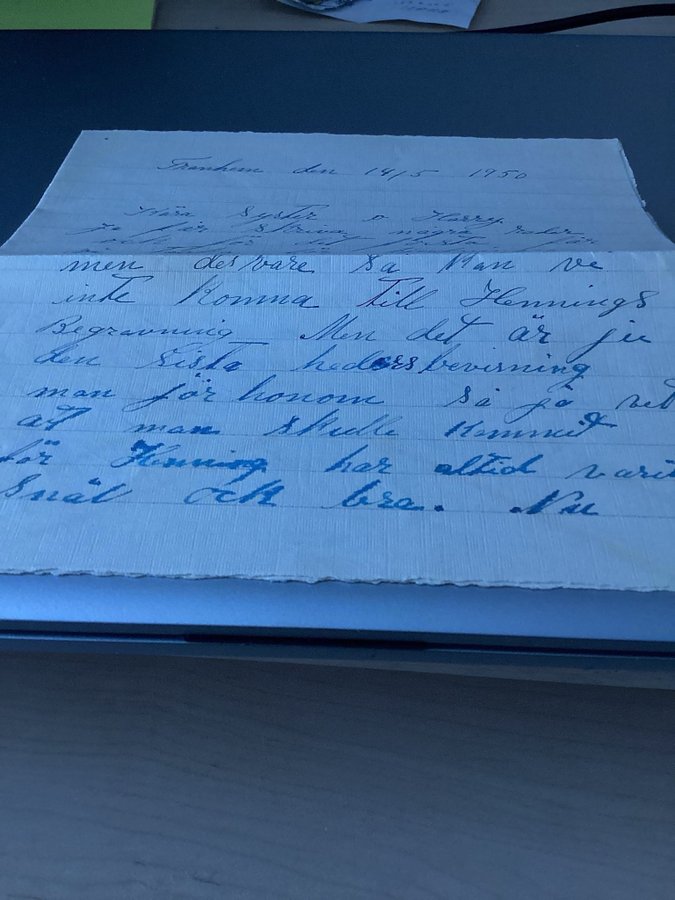 Tranhem den 14/5 1950
Kära Syster o Harry.
Ja får skriva några rader för
men desvare så kan ve
inte komma till Hennings
Begravning Men det är ju
den sista hedersbevisning
man jör honom så jä vet
at man skulle kommit
för Henning har altid varit
snäl och bra. Nu